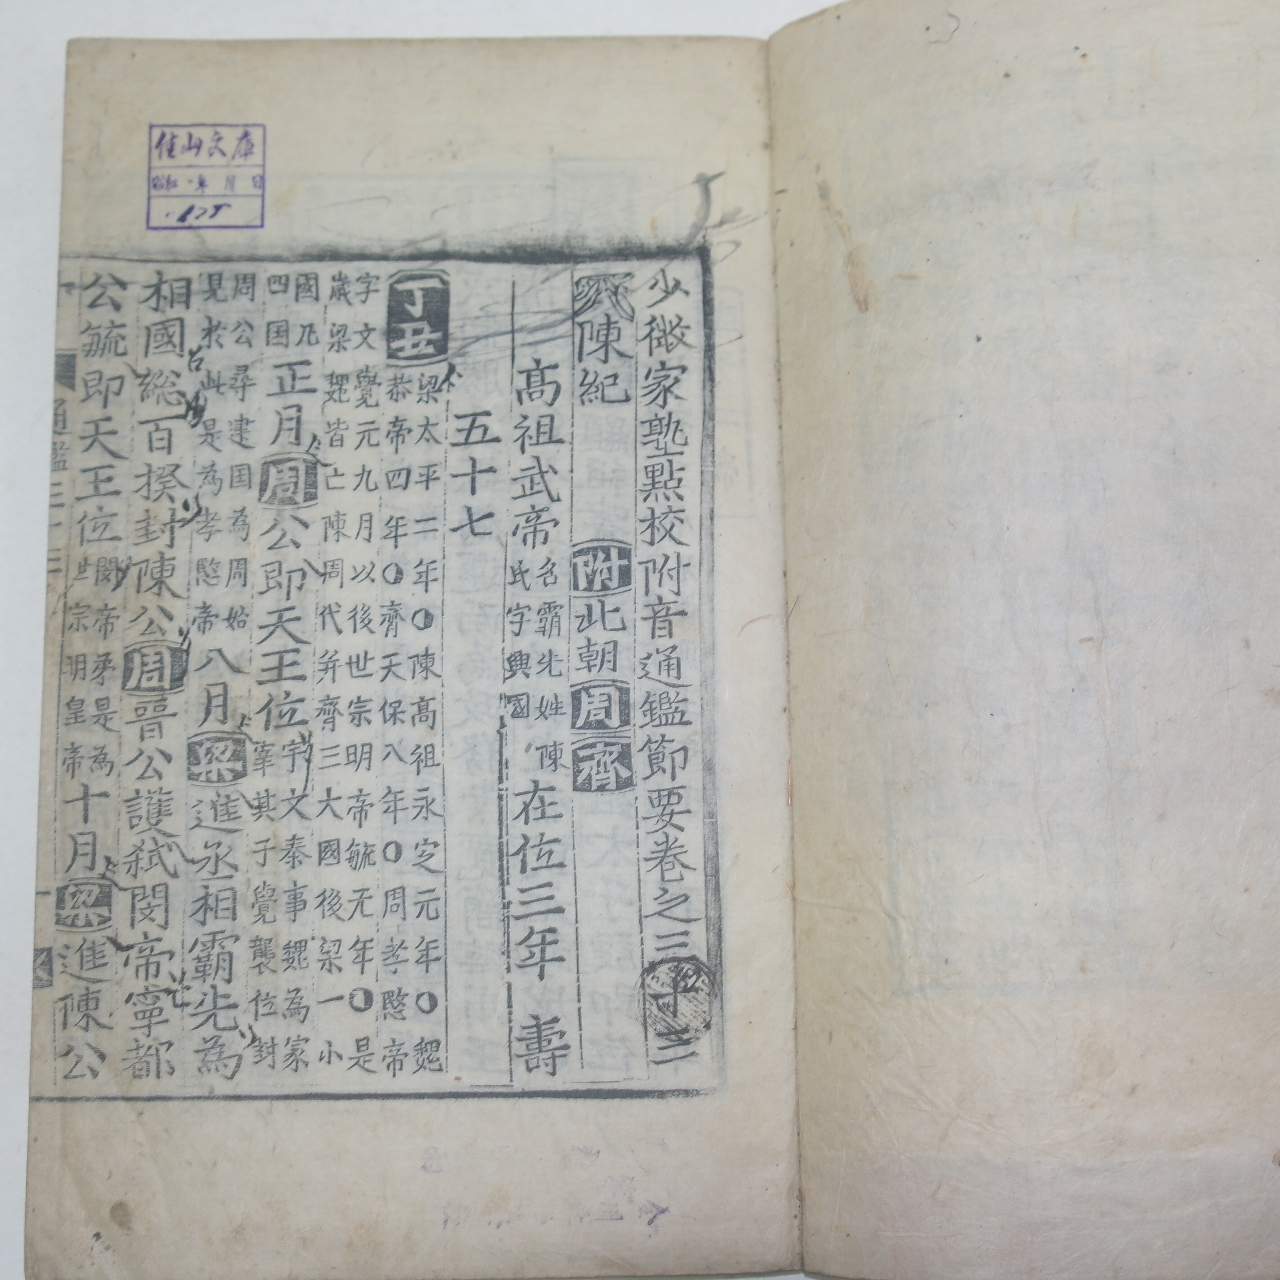 少微家塾點校附音通鑑節要卷之三十三
陳紀 附北朝周齊
高祖武帝 名霸先姓陳氏字興國 在位三年 壽
五十七
丁丑 梁太平二年○陳高祖永定元年○魏恭帝四年○齊天保八年○周孝愍帝
字文覺元九月以後世宗明帝毓元年○是歲梁魏皆亡陳周代并齊三大國後梁一小
國凡四国 正月周公即天王位 宇文泰事魏為冢宰其子覺襲位封
周公尋建国為周始見於此是為孝愍帝 八月梁進丞相霸先為
相國総百揆封陳公周晉公護弑閔帝寧都
公毓即天王位 閔帝矛是為世宗明皇帝 十月梁進陳公
通鑑三十三
佳山文庫
昭和 年 月 日